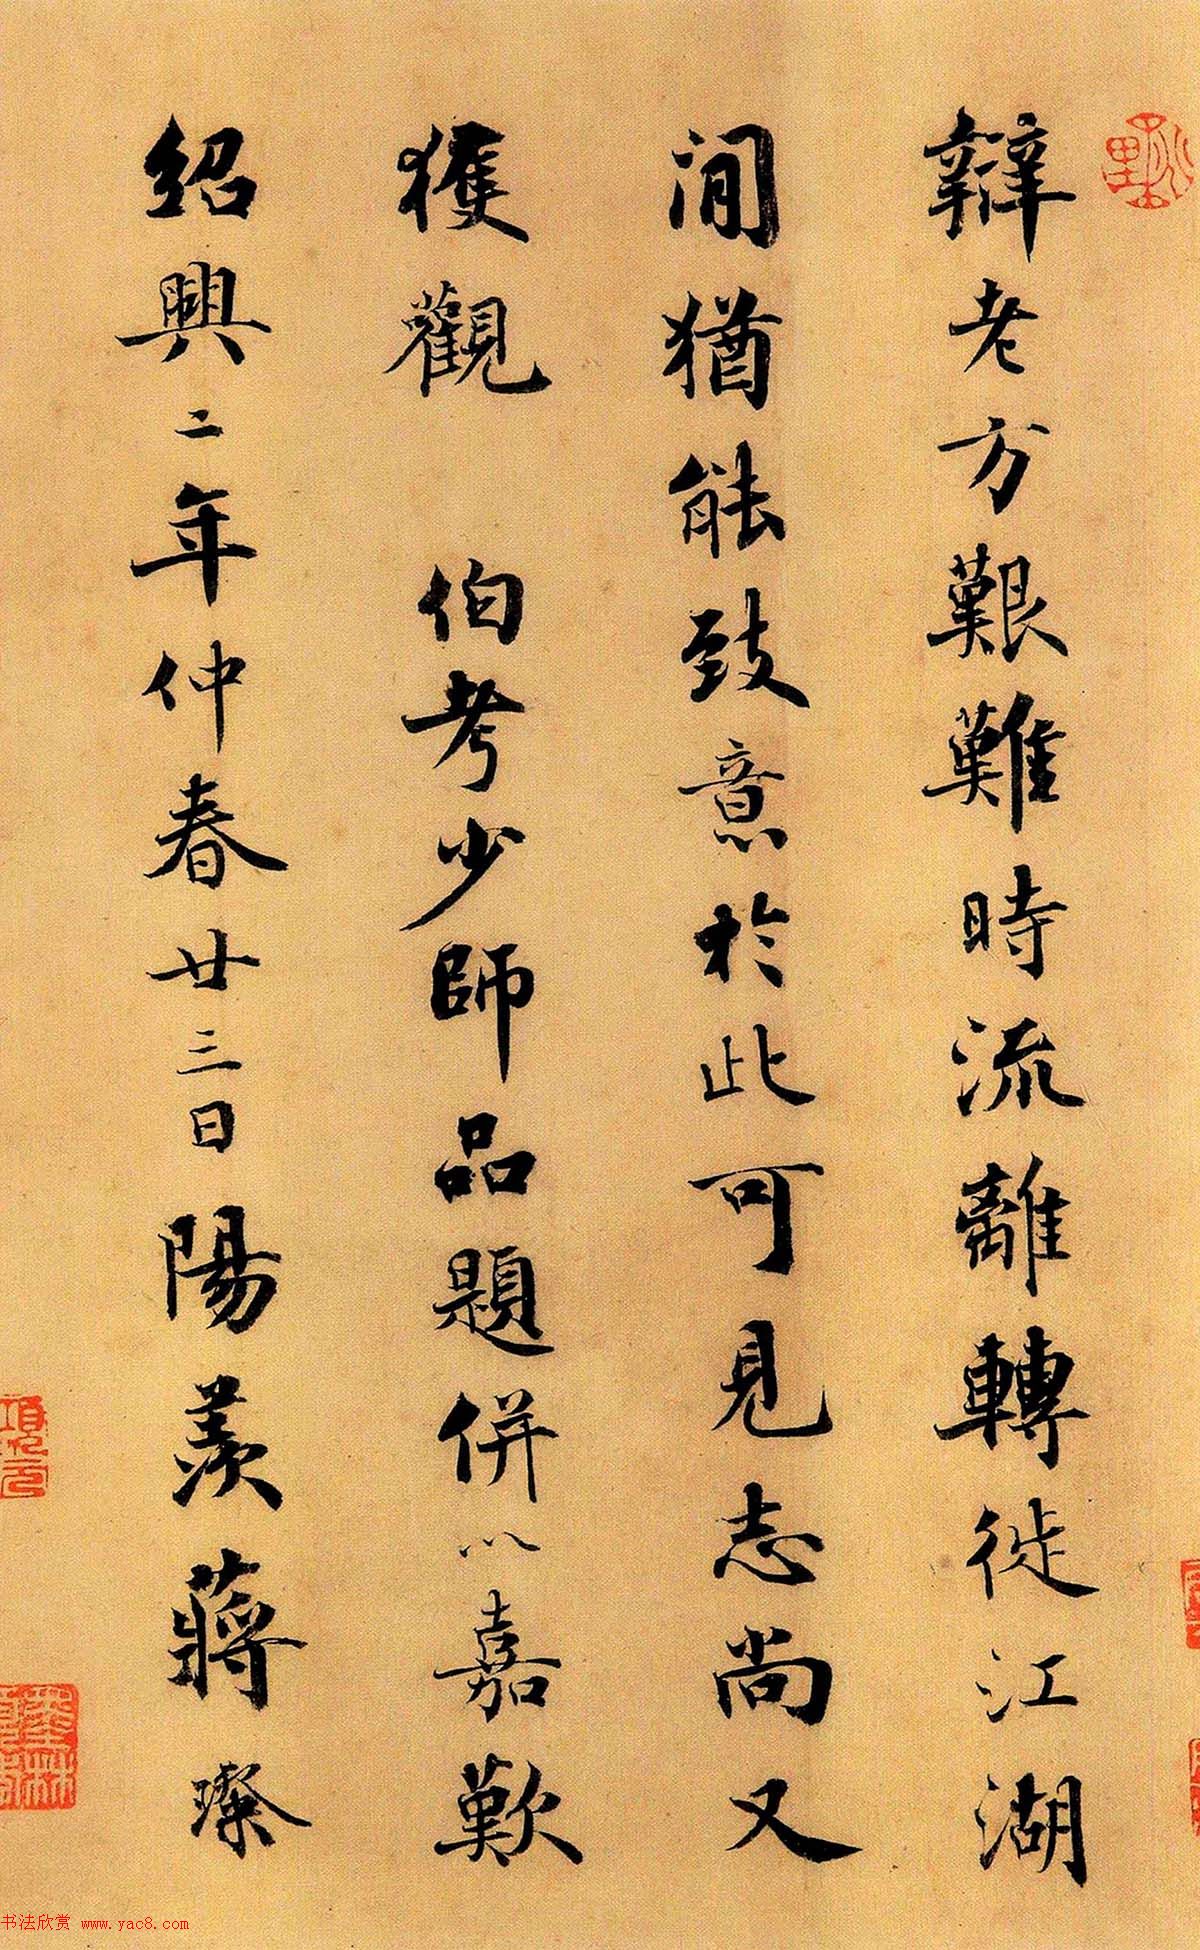 辯老方艱難時流離轉徙江湖
間猶能致意於此可見志尚又
獲觀 伯考少師品題併以嘉歎
紹興二年仲春廿三日陽羨蔣璨
書法欣赏 www.yac8.com